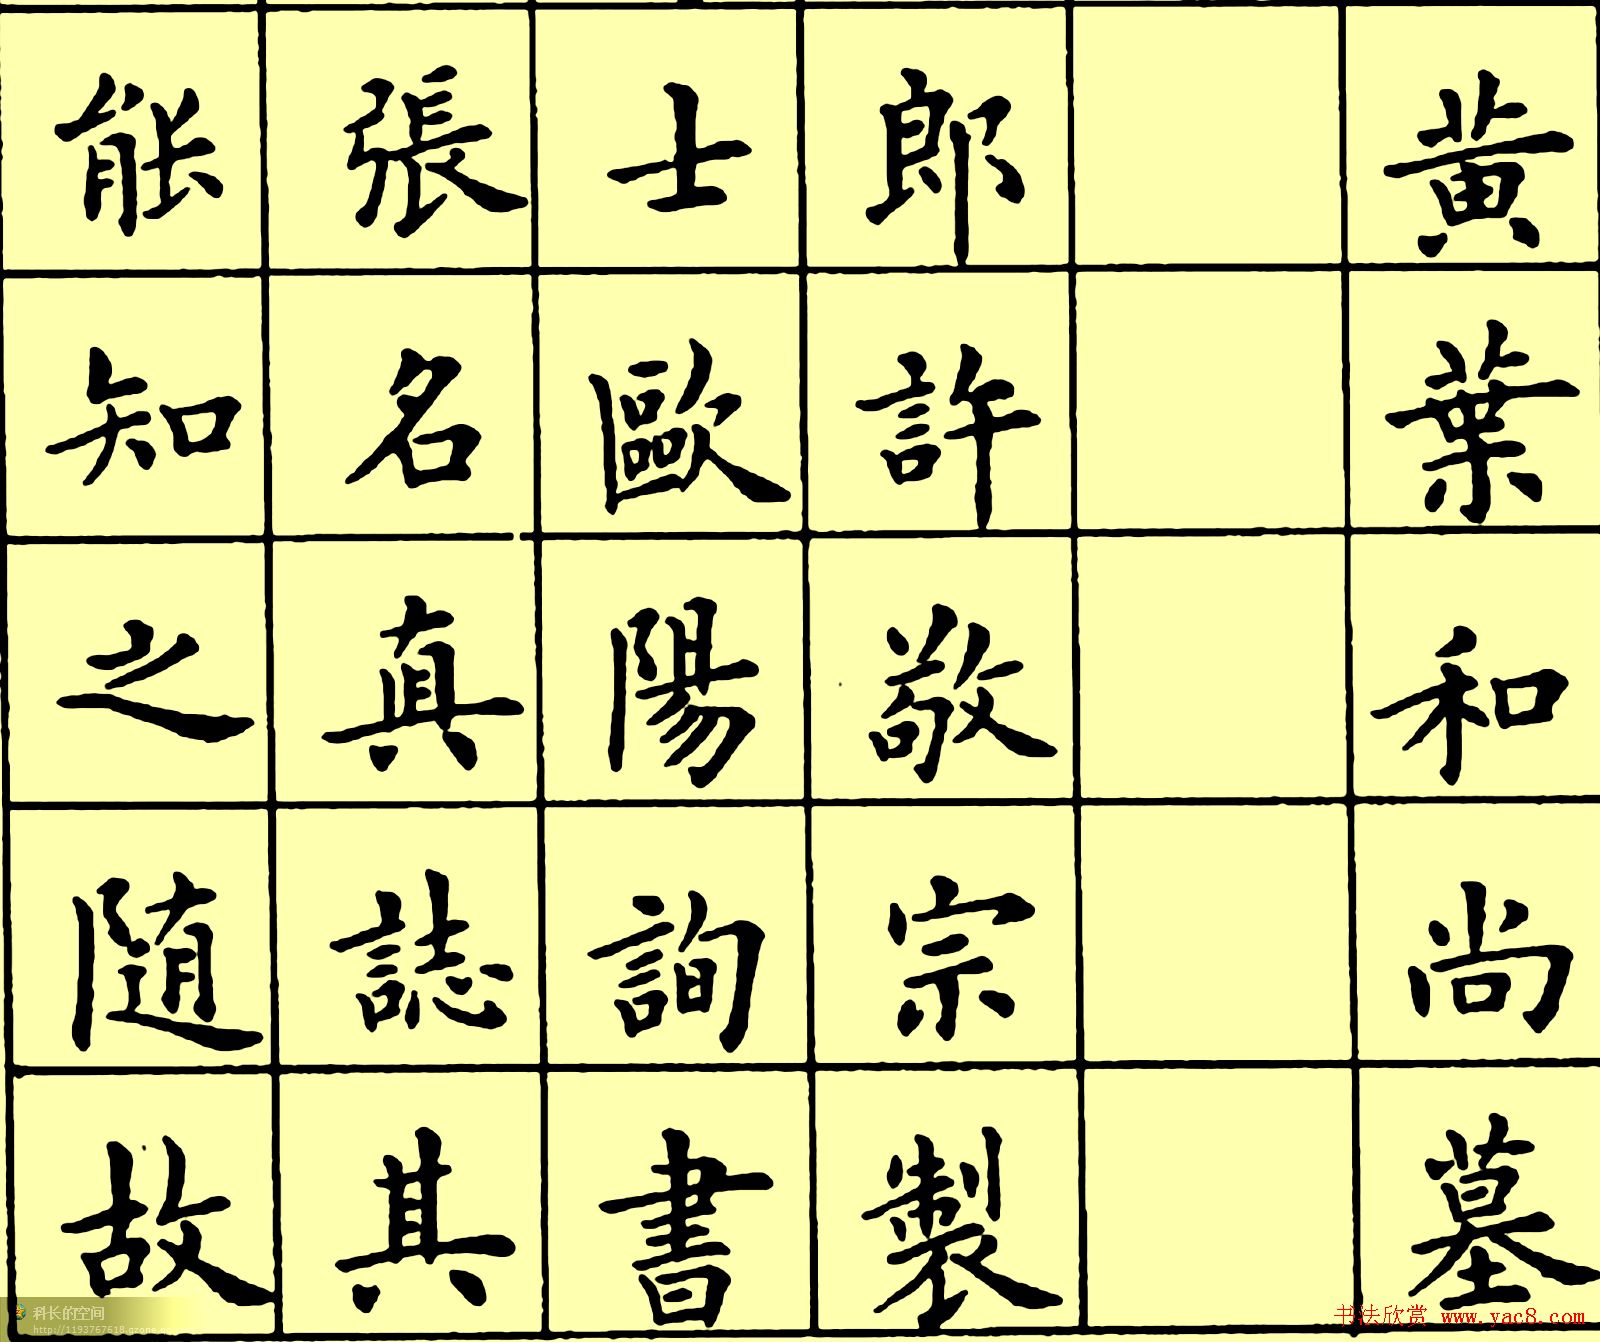 黄葉和尚墓
郎許敬宗製
士歐陽詢書
張名真誌其
能知之随故
科长的空间
http://1193767618.qzone.qq.com
书法欣赏 www.yac8.com